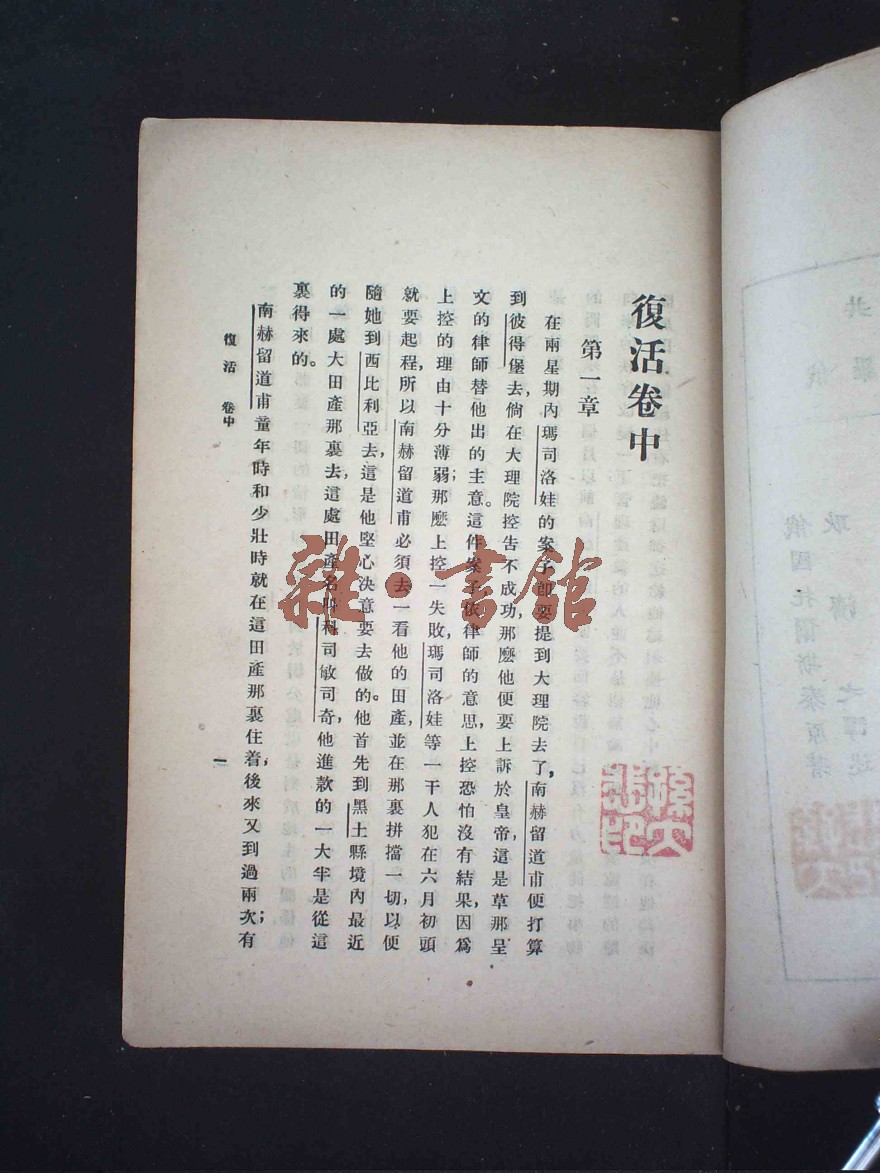 復活卷中
第一章
在兩星期內瑪司洛娃的案子卽要提到大理院去了,南赫留道甫便打算
到彼得堡去,倘在大理院控告不成功,那麽他便要上訴於皇帝,這是草那呈
文的律師替他出的主意。這件案子,依律師的意思,上控恐怕沒有結果,因爲
上控的理由十分薄弱;那麽上控一失敗,瑪司洛娃等一干人犯在六月初頭
就要起程,所以南赫留道甫必須去一看他的田產,並在那裏拼擋一切,以便
隨她到西比利亞去,這是他堅心决意要去做的。他首先到黑土縣境內最近
的一處大田產那裏去,這處田產名叫科司敏司奇,他進款的一大半是從這
裏得來的。
南赫留道甫童年時和少壯時就在這田產那裏住着,後來又到過兩次;有
復活 卷中
一
雜·書館
俄國托爾斯泰原著
耿濟之譯述